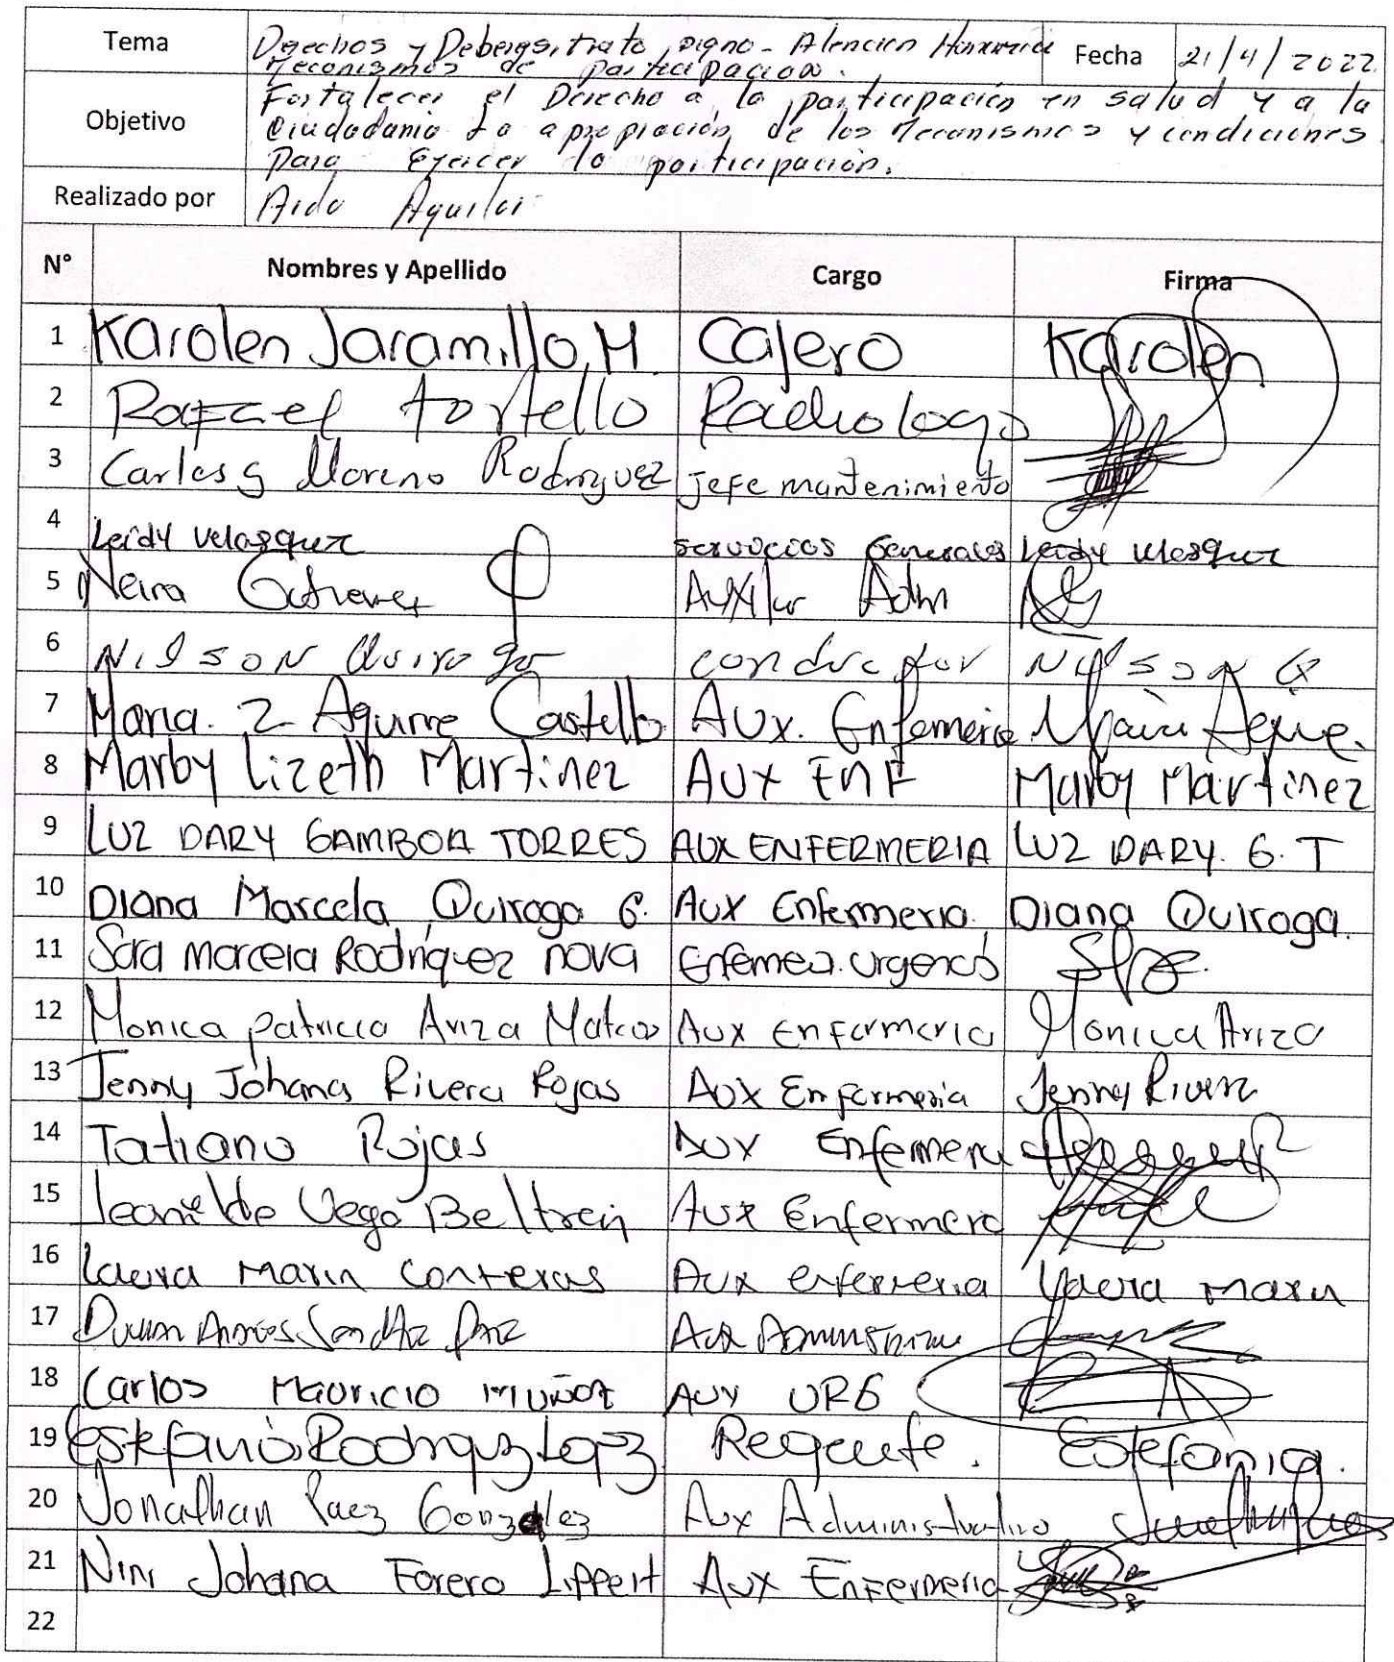 Tema Derechos y Deberes, trato Digno - Atencion Fecha 21/4/2022
Mecanismos de participacion.
Fortalecer el Derecho a la participación en salud y a la
Objetivo ciudadania la apropiación de los Mecanismos y condiciones
para Ejercer la participación.
Realizado por Aida Aguilar
N° Nombres y Apellido Cargo Firma
1 Karolen Jaramillo M. Cajero Karolen
2 Rafael Tortello Radiologo
3 Carlos G Moreno Rodriguez Jefe mantenimiento
4 Leidy Velasquez servicios Generales Leidy Velasquez
5 Neira Gutierrez Auxiliar Adm
6 Nilson Quiroga conductor Nilson Q
7 Maria. Z Aguirre Castello AUX. Enfermeria Maria Aguirre.
8 Marby Lizeth Martinez AUX ENF Marby Martinez
9 LUZ DARY GAMBOA TORRES AUX ENFERMERIA LUZ DARY. G. T
10 Diana Marcela Quiroga G. AUX Enfermeria. Diana Quiroga.
11 Sara marcela Rodriguez nova Enfermera. urgencias
12 Monica patricia Ariza Mateus AUX Enfermeria Monica Ariza
13 Jenny Johana Rivera Rojas AUX Enfermeria Jenny Rivera
14 Tatiana Rojas AUX Enfermeria
15 Leonilde Vega Beltran Aux Enfermera
16 Laura Marin Contreras Aux enfermeria Laura marin
17 Andres Sanchez Aux Administrativo
18 Carlos Mauricio Muñoz AUX URG
19 Estefania Rodriguez Lopez Regente. Estefania.
20 Jonathan Paez Gonzalez Aux Administrativo
21 Nini Johana Forero Lippert Aux Enfermeria
22